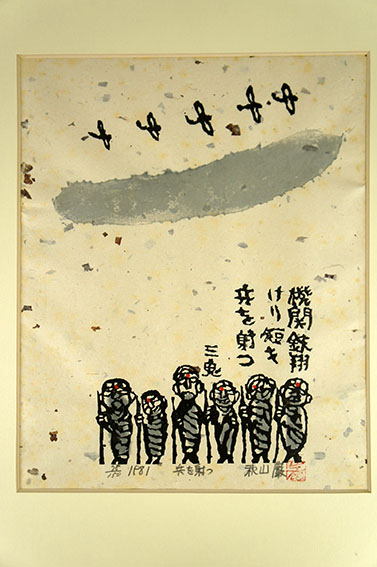 機関銃翔
けり短き
兵を射つ
三鬼
1981 兵を射つ 秋山 巌